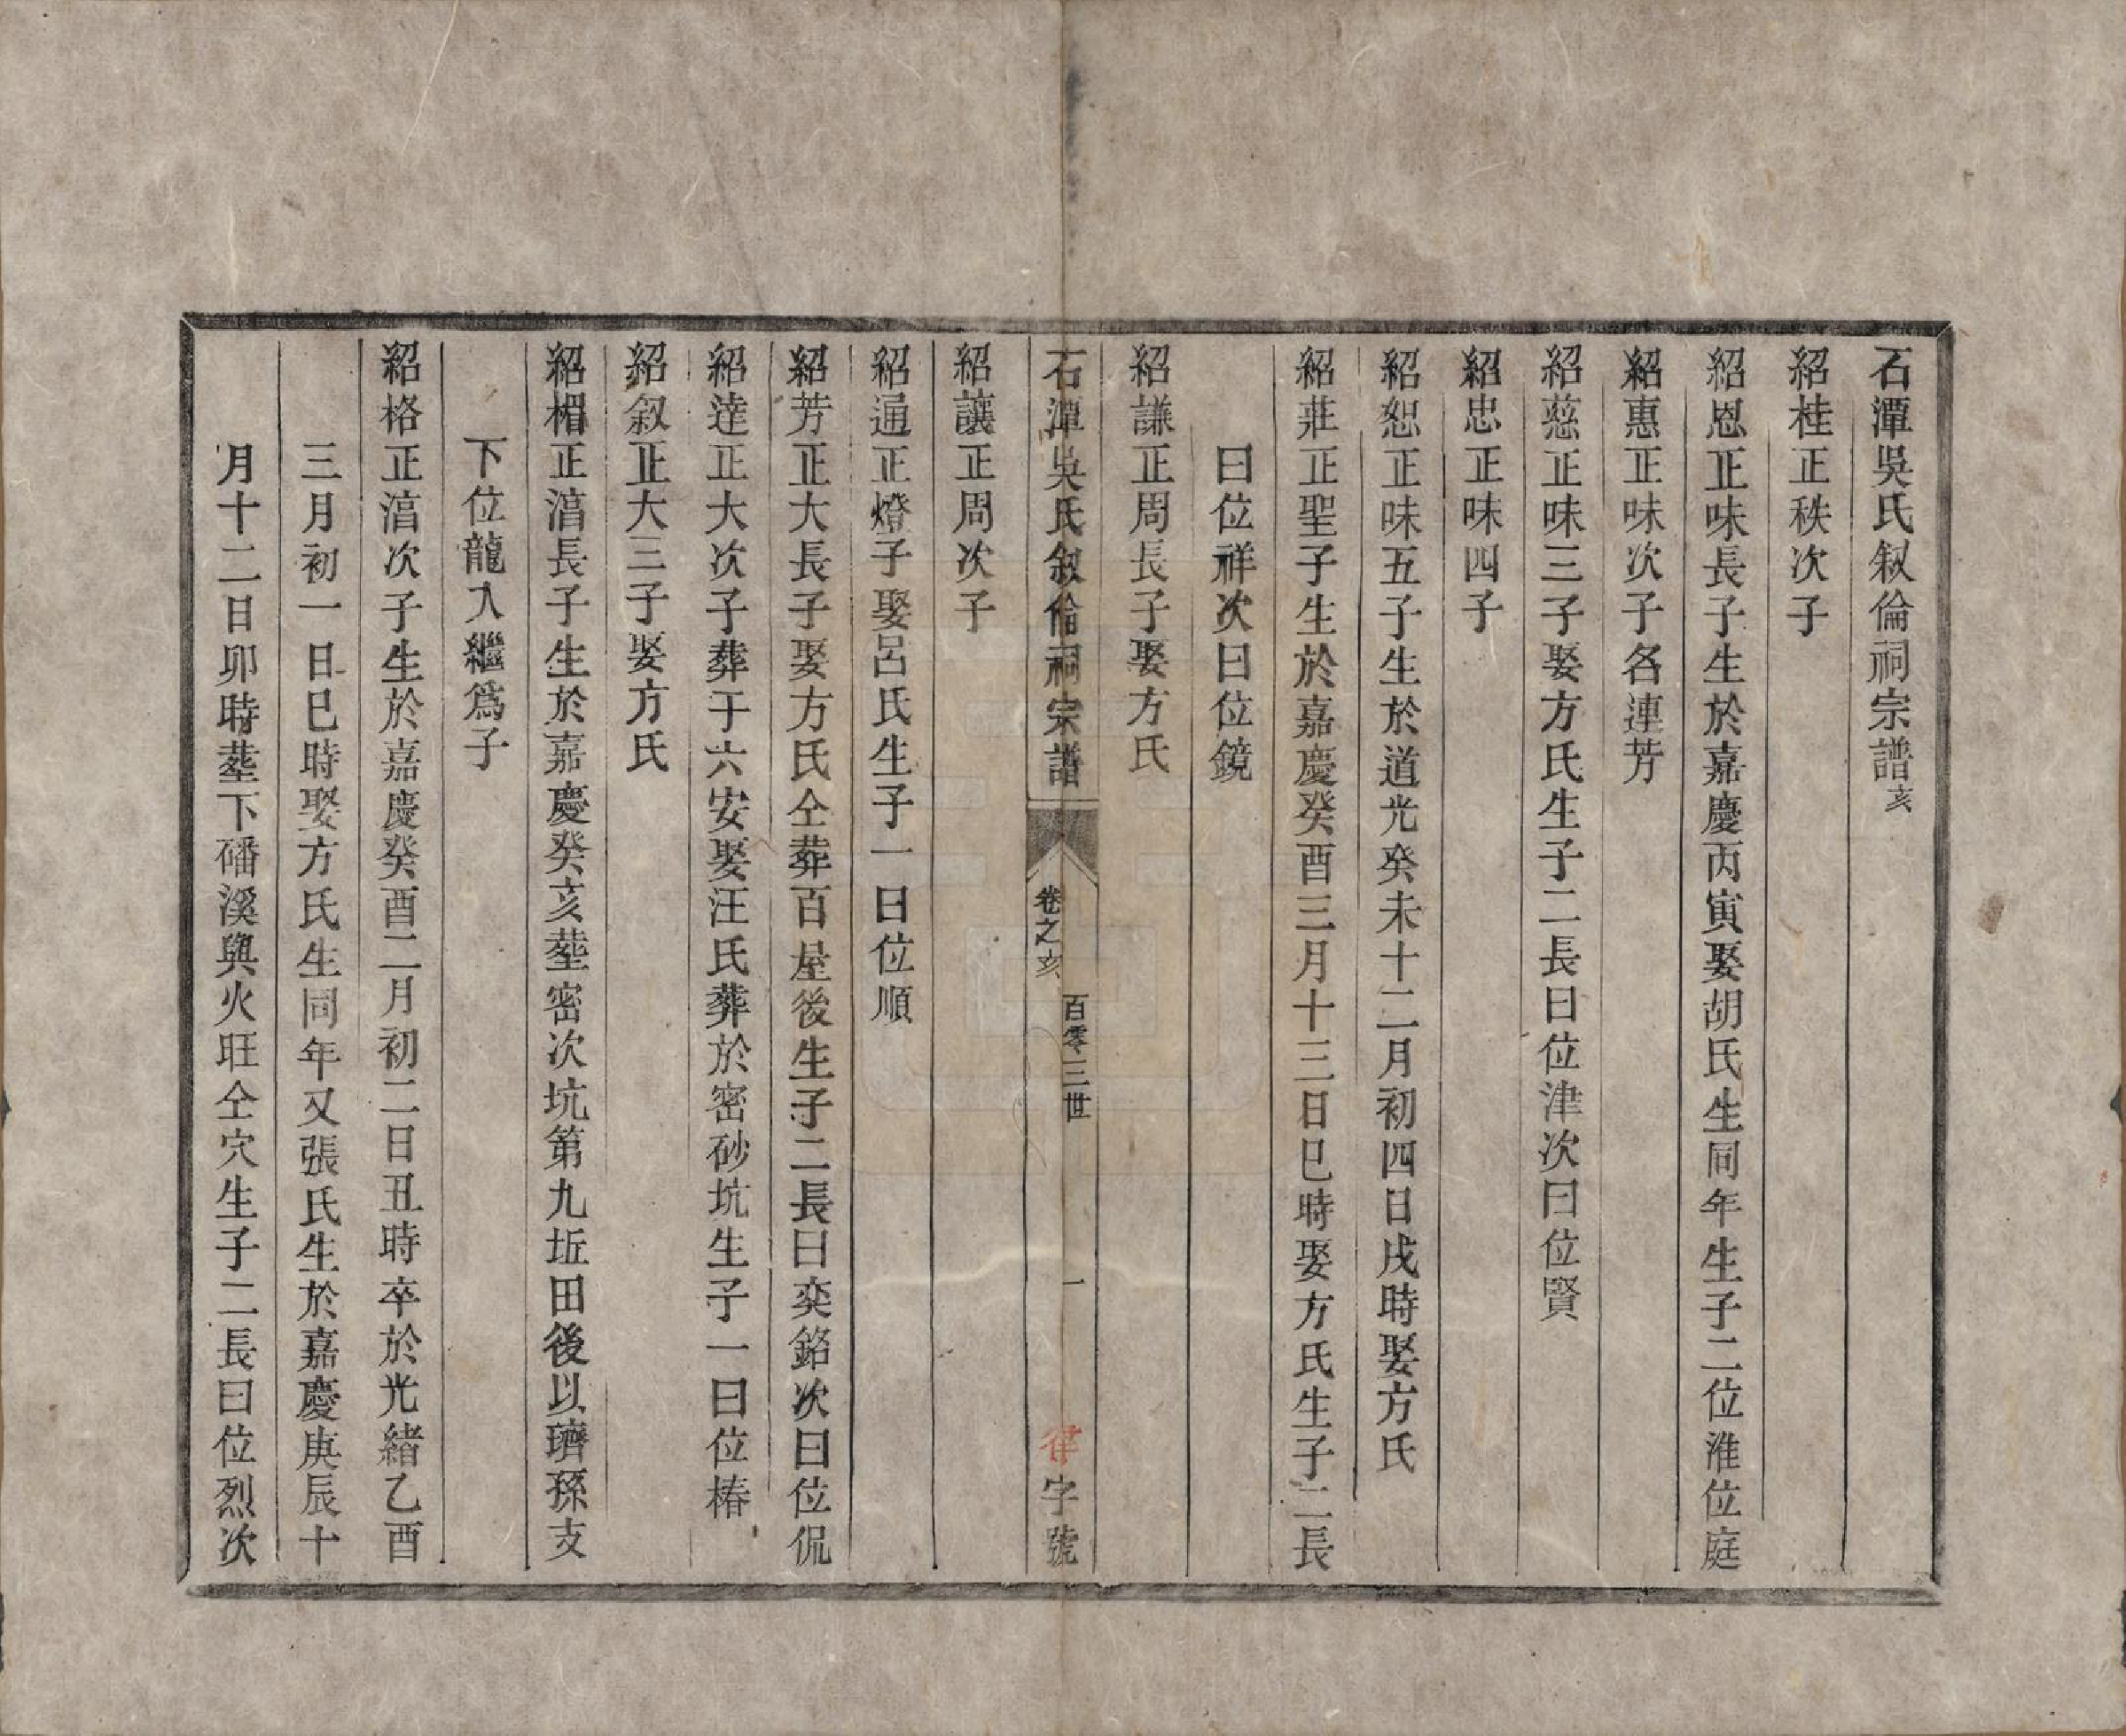 石潭吳氏叙倫祠宗譜亥
紹桂正秩次子
紹恩正味長子生於嘉慶丙寅娶胡氏生同年生子二位淮位庭
紹惠正味次子名連芳
紹慈正味三子娶方氏生子二長曰位津次曰位賢
紹忠正味四子
紹恕正味五子生於道光癸未十二月初四日戌時娶方氏
紹莊正聖子生於嘉慶癸酉三月十三日巳時娶方氏生子二長
曰位祥次曰位鏡
紹謙正周長子娶方氏
石潭吳氏叙倫祠宗譜
卷之亥
百零三世
一
律字號
紹讓正周次子
紹通正燈子娶呂氏生子一曰位順
紹芳正大長子娶方氏仝葬百屋後生子二長曰奕銘次曰位侃
紹達正大次子葬于六安娶汪氏葬於密砂坑生子一曰位椿
紹叙正大三子娶方氏
紹楣正滀長子生於嘉慶癸亥塟密次坑第九坵田後以璾孫支
下位龍入繼爲子
紹格正滀次子生於嘉慶癸酉二月初二日丑時卒於光緒乙酉
三月初一日巳時娶方氏生同年又張氏生於嘉慶庚辰十
月十二日卯時塟下磻溪與火旺仝穴生子二長曰位烈次